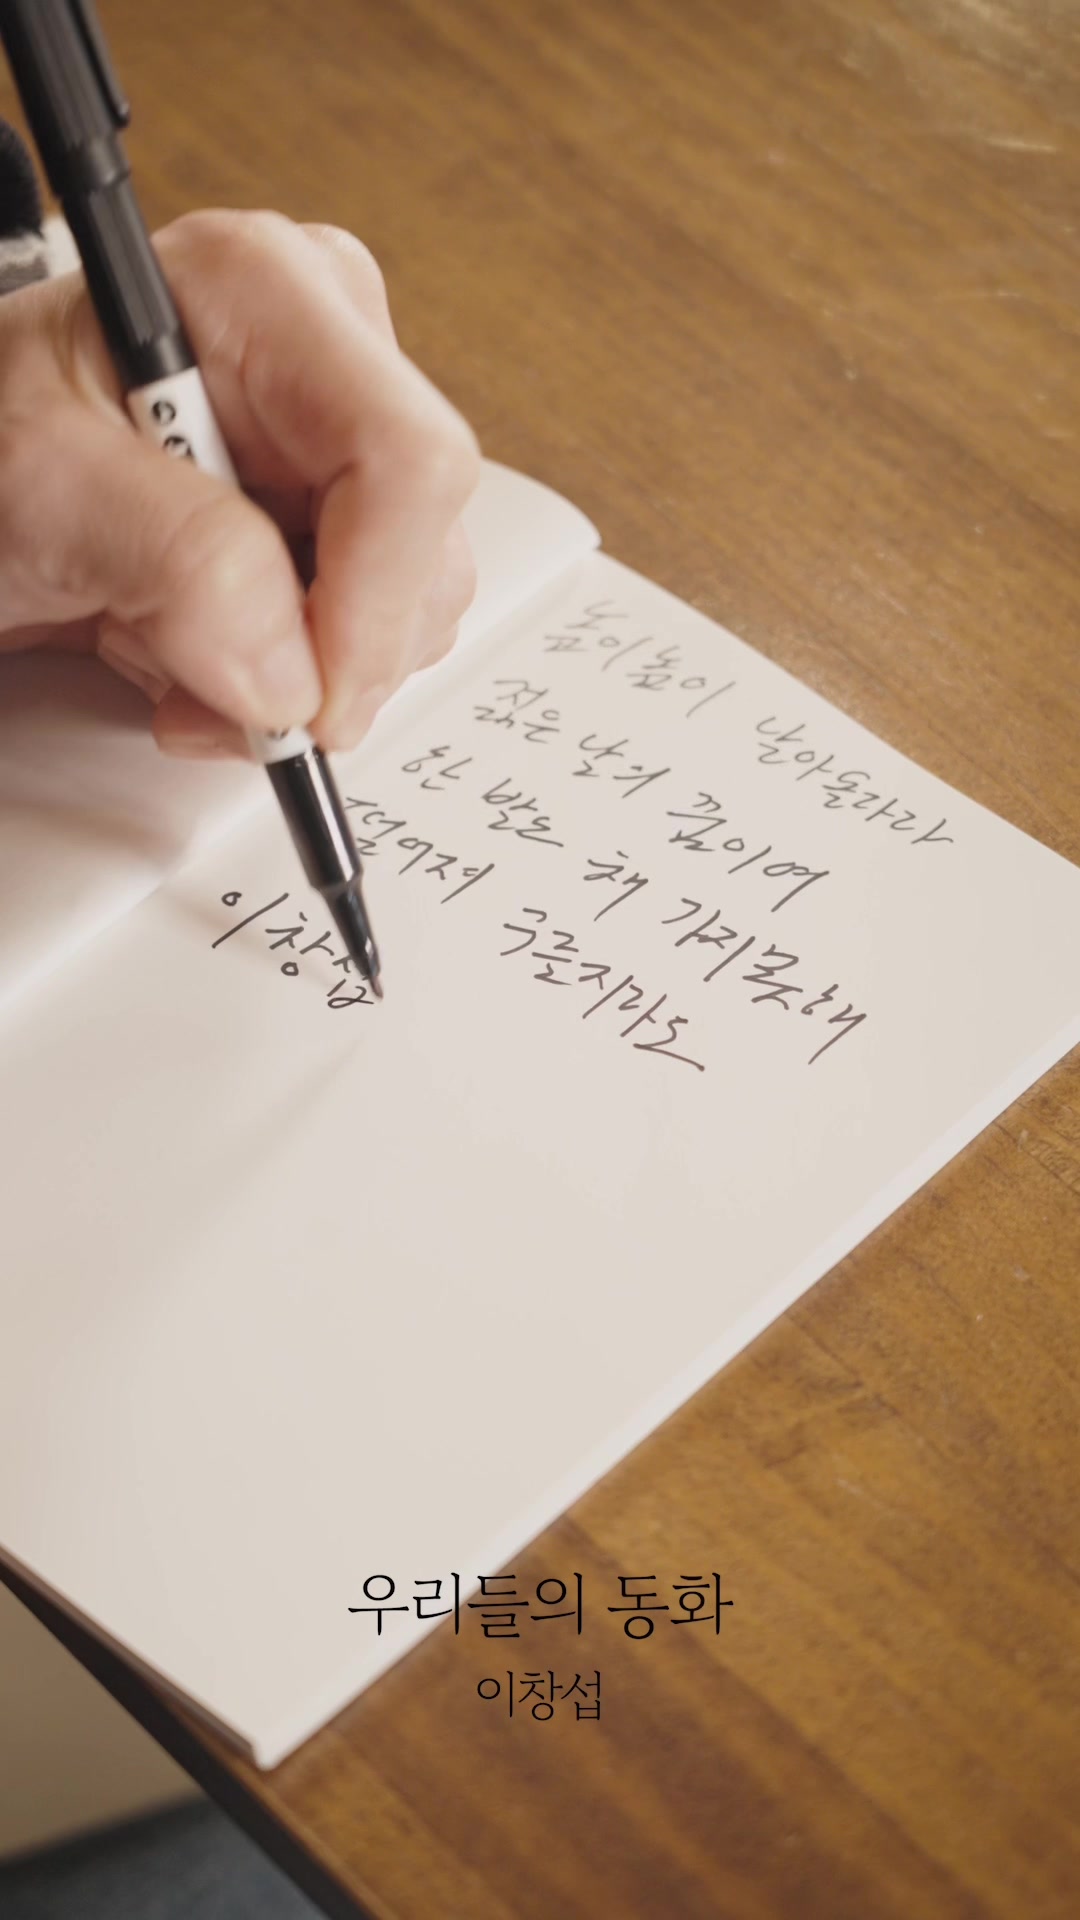 높이높이 날아올라라
젊은 날의 꿈이여
한 발도 채 가지 못해
떨어져 구를지라도
이창섭
우리들의 동화
이창섭